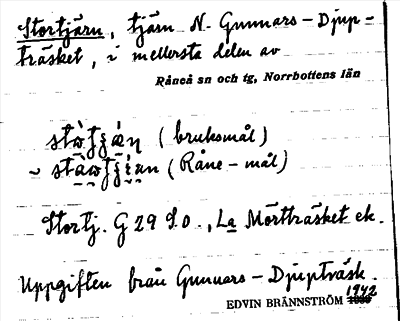 Stortjärn, tjärn N. Gunnars-Djup-
träsket, i mellersta delen av
Råneå sn och tg, Norrbottens län
(bruksmål)
(Råne-mål)
Stortj. G 29 S.O., La Mörtträsket ek.
Uppgiften från Gunnars-Djupträsk.
1942
EDVIN BRÄNNSTRÖM